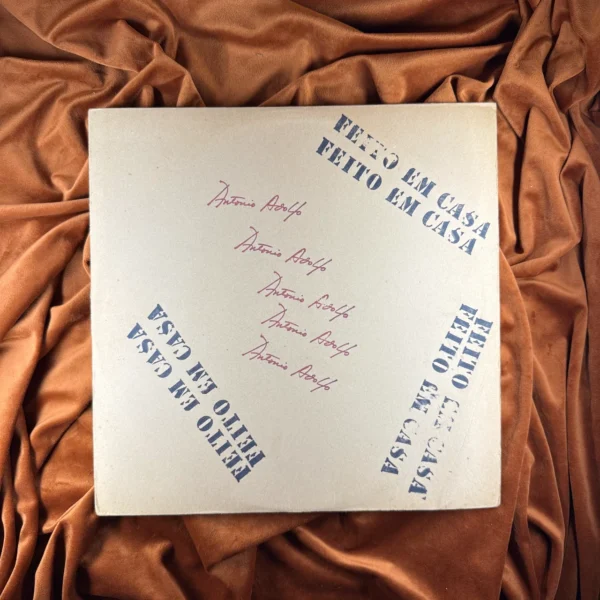 FEITO EM CASA
FEITO EM CASA
Antonio Adolfo
Antonio Adolfo
Antonio Adolfo
Antonio Adolfo
Antonio Adolfo
FEITO EM CASA
FEITO EM CASA
FEITO EM CASA
FEITO EM CASA